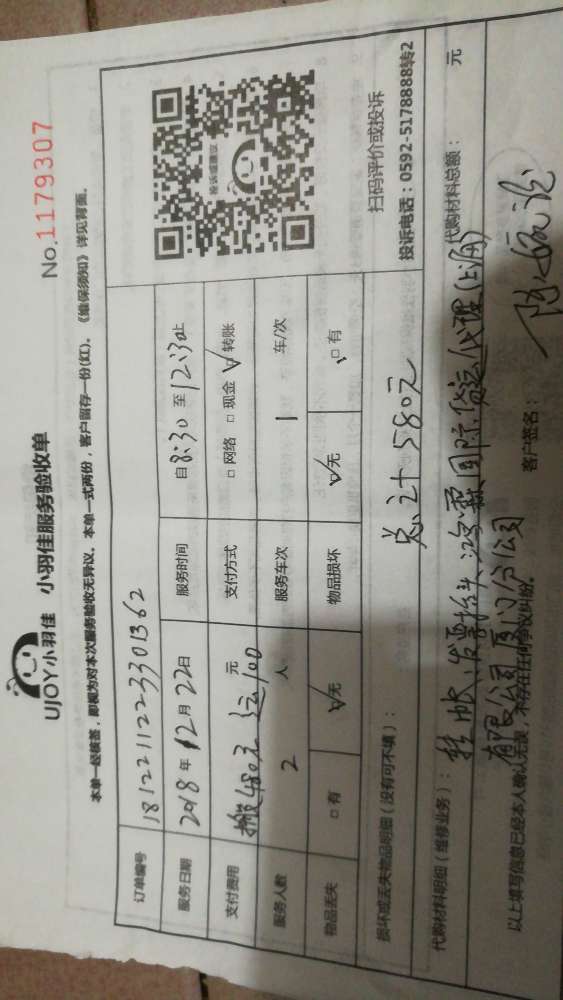 UJOY小羽佳 小羽佳服务验收单
No.1179307
本单一经核签，即视为对本次服务验收无异议。本单一式两份，客户留存一份(红)。《维保须知》详见背面。
订单编号 1812211223301362
服务日期 2018年12月22日 服务时间 自8:30至12:30止
支付费用 搬运480元 运100 元 支付方式 □网络 □现金 ☑转账
服务人数 2 人 服务车次 1 车/次
物品丢失 □有 ☑无 物品损坏 ☑无 □有
投诉或建议
扫码评价或投诉
投诉电话：0592-5178888转2
损坏或丢失物品明细（没有可不填）：
总计580元
代购材料明细（维修业务）： 代购材料总额： 元
挂帐，发票抬头：鸿霖国际货运代理(上海)
有限公司厦门分公司
以上填写信息已经本人确认无误，不存在任何争议纠纷。 客户签名：